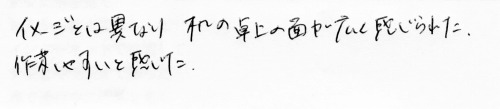 イメージとは異なり 机の卓上の面が広く感じられた.
作業しやすいと感じた.